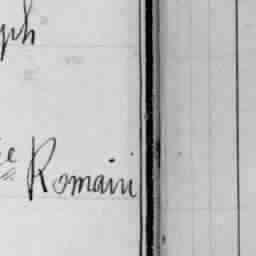 ph
e Romain